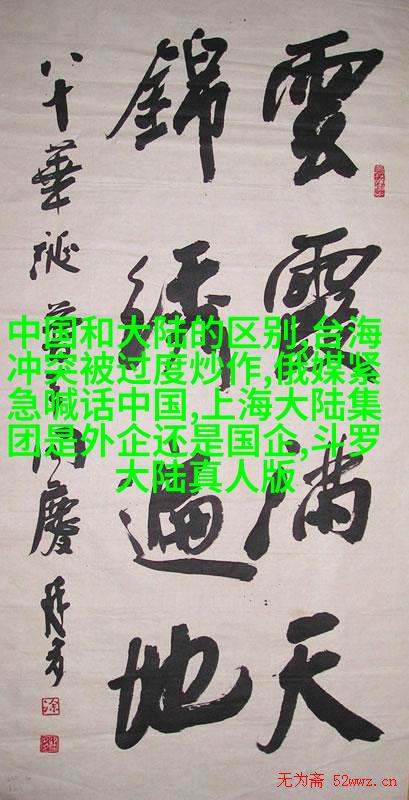 雲霞满天
錦繡遍地
八十華诞普天同慶
中国和大陆的区别,台海
冲突被过度炒作,俄媒紧
急喊话中国,上海大陆集
团是外企还是国企,斗罗
大陆真人版
无为斋 52wwz.cn